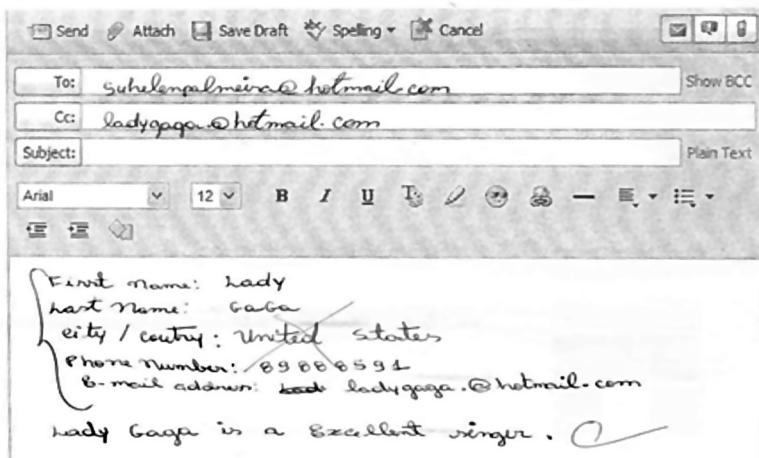 Send Attach Save Draft Spelling Cancel
To: suhelenpalmeira@hotmail.com Show BCC
Cc: ladygaga.@hotmail.com
Subject: Plain Text
Arial 12 B I U
First name: Lady
Last Name: GaGa
city / coutry: United States
Phone Number: 89888591
E-mail address: ladygaga.@hotmail.com
Lady Gaga is a Excellent singer.